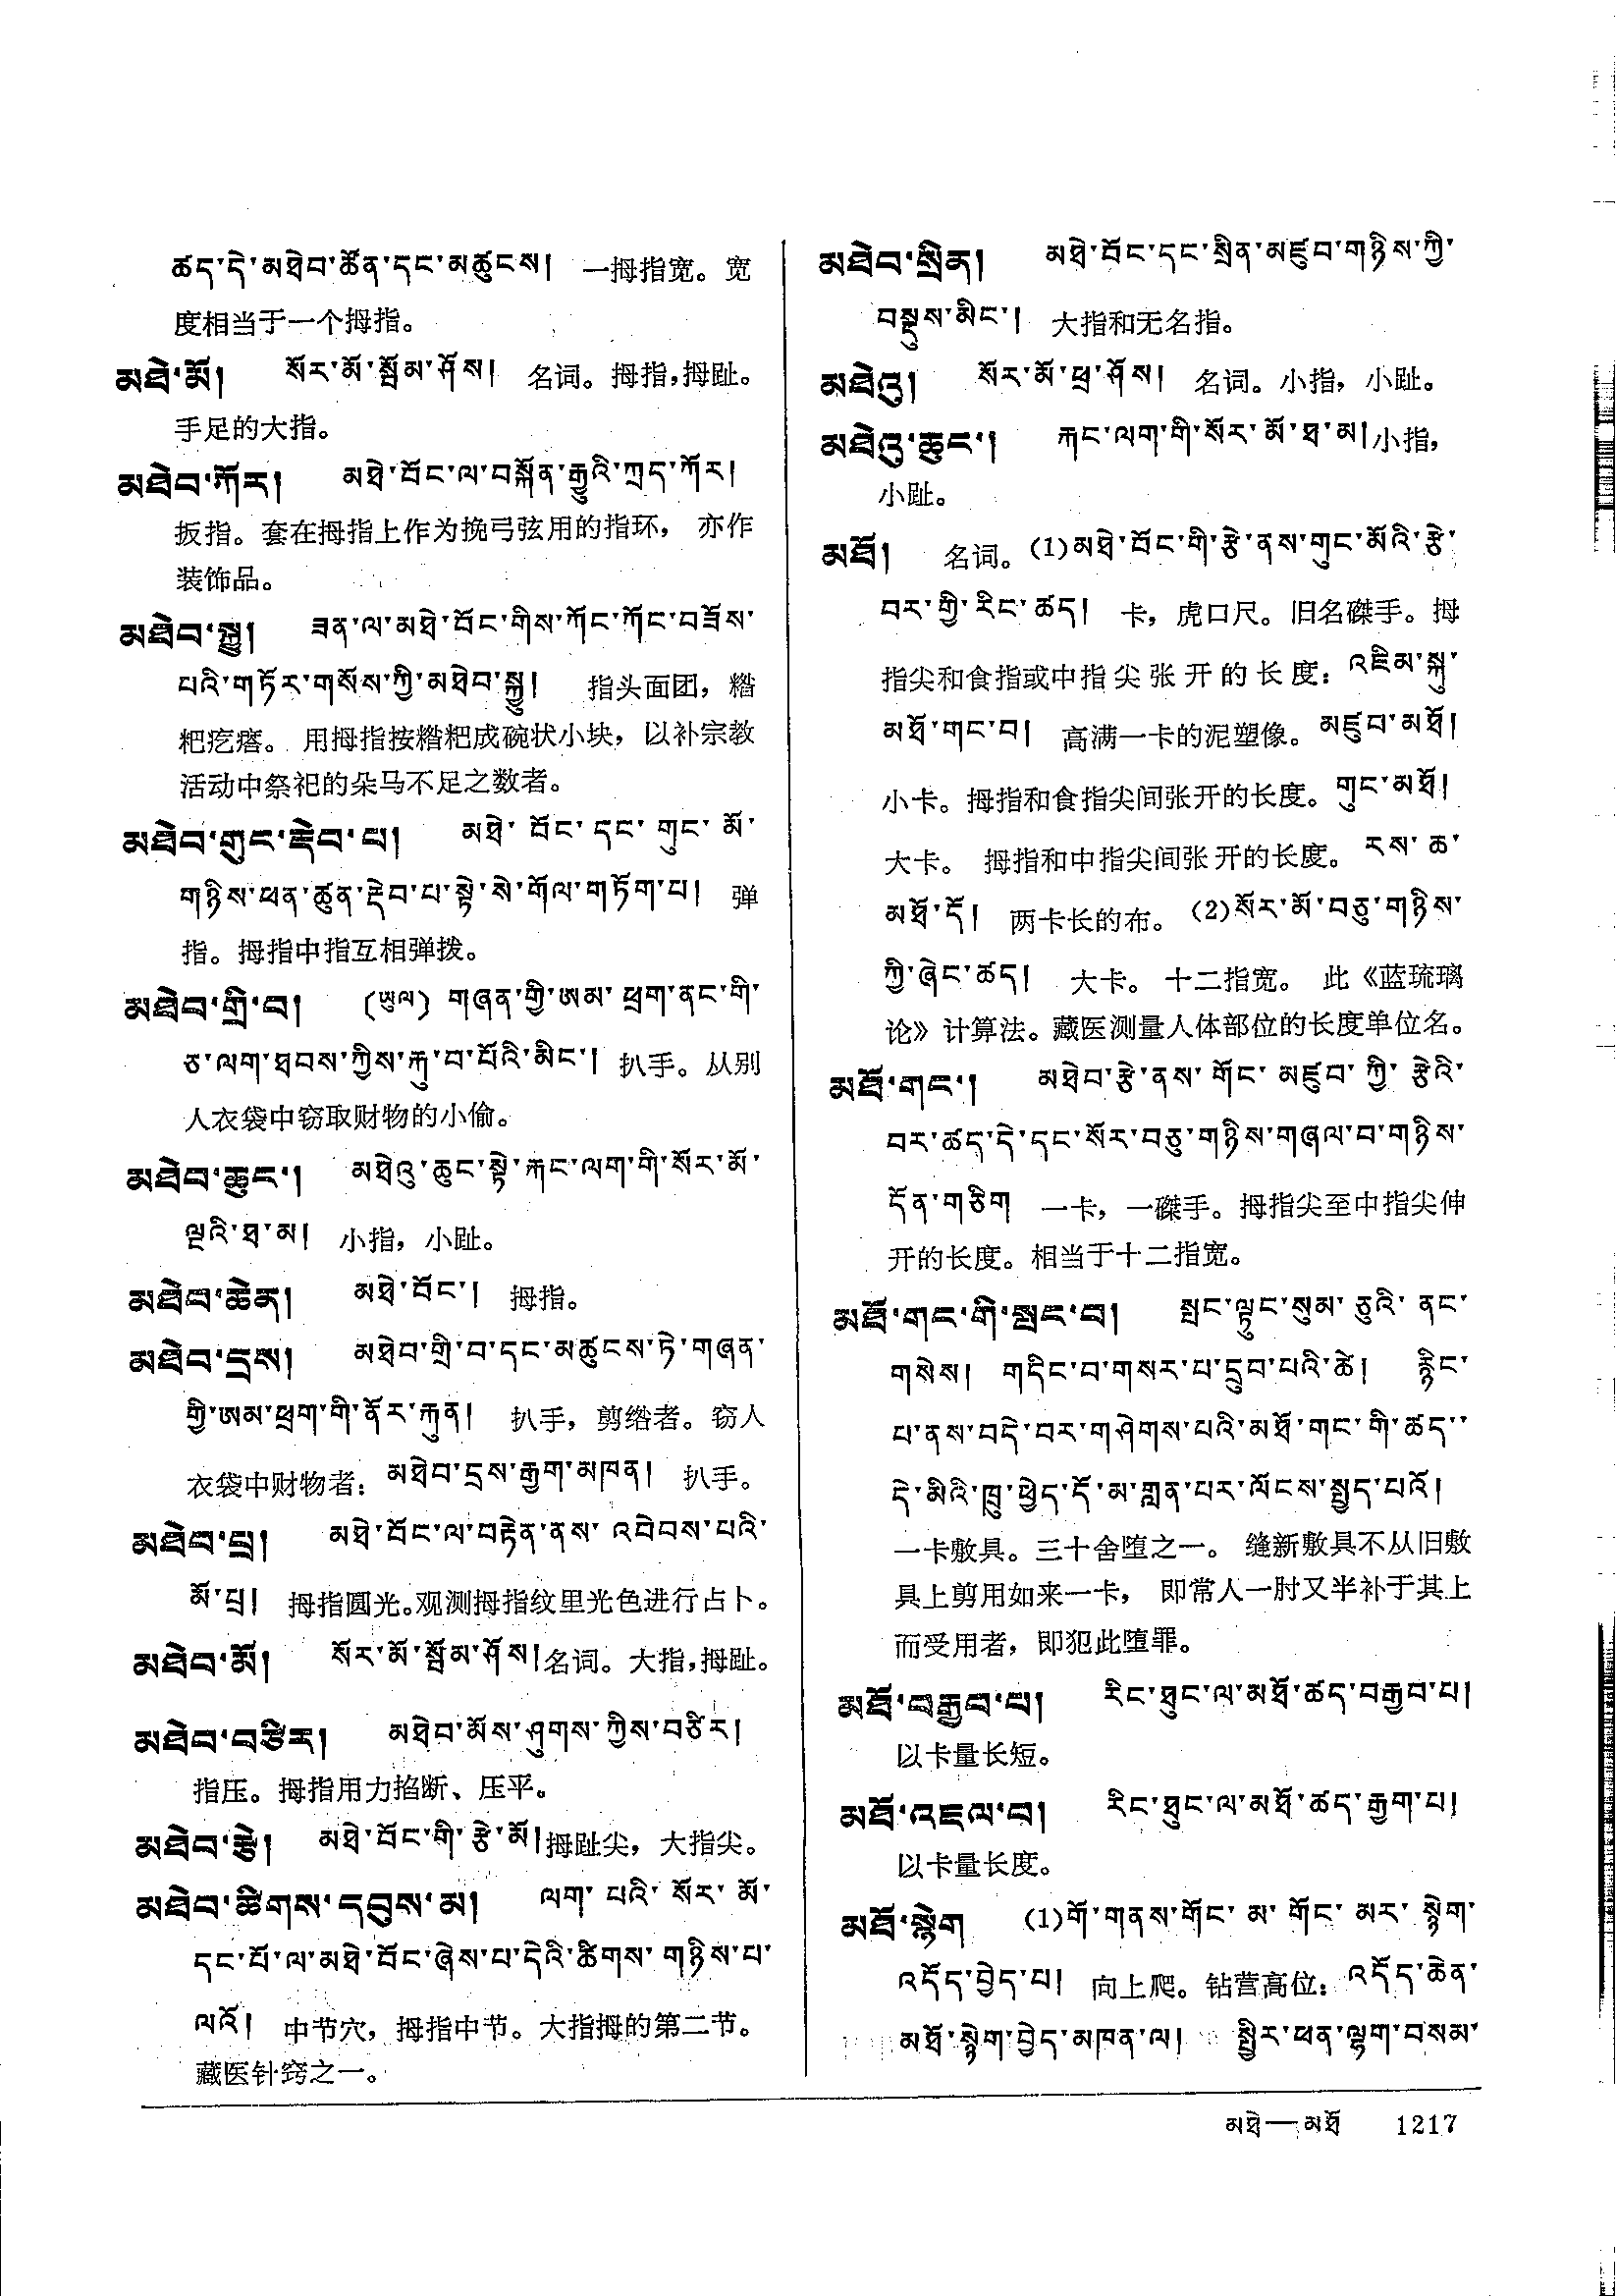 ཚད་དེ་མཐེབ་ཚོན་དང་མཚུངས།  一拇指宽。宽
度相当于一个拇指。
མཐེ་མོ།  སོར་མོ་སྦོམ་ཤོས།  名词。拇指，拇趾。
手足的大指。
མཐེབ་ཀོར།  མཐེ་བོང་ལ་བསྐོན་རྒྱུའི་ཀྲད་ཀོར།
扳指。套在拇指上作为挽弓弦用的指环，亦作
装饰品。
མཐེབ་སྐྱུ།  ཟན་ལ་མཐེ་བོང་གིས་ཀོང་ཀོང་བཟོས་
པའི་གཏོར་གསོས་ཀྱི་མཐེབ་སྐྱུ།  指头面团，糌
粑疙瘩。用拇指按糌粑成碗状小块，以补宗教
活动中祭祀的朵马不足之数者。
མཐེབ་གུང་རྡེབ་པ།  མཐེ་བོང་དང་གུང་མོ་
གཉིས་ཕན་ཚུན་རྡེབ་པ་སྟེ་སེ་གོལ་གཏོག་པ།  弹
指。拇指中指互相弹拨。
མཐེབ་གྲི་བ།  (ཡུལ) གཞན་གྱི་ཨམ་ཕྲག་ནང་གི་
ཅ་ལག་ཐབས་ཀྱིས་རྐུ་བ་པོའི་མིང་།  扒手。从别
人衣袋中窃取财物的小偷。
མཐེབ་ཆུང་།  མཐེའུ་ཆུང་སྟེ་རྐང་ལག་གི་སོར་མོ་
ལྔའི་ཐ་མ།  小指，小趾。
མཐེབ་ཆེན།  མཐེ་བོང་།  拇指。
མཐེབ་དྲས།  མཐེབ་གྲི་བ་དང་མཚུངས་ཏེ་གཞན་
གྱི་ཨམ་ཕྲག་གི་ནོར་རྐུན།  扒手，剪绺者。窃人
衣袋中财物者：མཐེབ་དྲས་རྒྱག་མཁན།  扒手。
མཐེབ་པྲ།  མཐེ་བོང་ལ་བརྟེན་ནས་འབེབས་པའི་
མོ་པྲ།  拇指圆光。观测拇指纹里光色进行占卜。
མཐེབ་མོ།  སོར་མོ་སྦོམ་ཤོས།名词。大指，拇趾。
མཐེབ་བཙིར།  མཐེབ་མོས་ཤུགས་ཀྱིས་བཙིར།
指压。拇指用力掐断、压平。
མཐེབ་རྩེ།  མཐེ་བོང་གི་རྩེ་མོ།拇趾尖，大指尖。
མཐེབ་ཚིགས་དབུས་མ།  ལག་པའི་སོར་མོ་
དང་པོ་ལ་མཐེ་བོང་ཞེས་པ་དེའི་ཚིགས་གཉིས་པ་
ལའོ།  中节穴，拇指中节。大指拇的第二节。
藏医针窍之一。
མཐེབ་སྲིན།  མཐེ་བོང་དང་སྲིན་མཛུབ་གཉིས་ཀྱི་
བསྡུས་མིང་།  大指和无名指。
མཐེའུ།  སོར་མོ་ཕྲ་ཤོས།  名词。小指，小趾。
མཐེའུ་ཆུང་།  རྐང་ལག་གི་སོར་མོ་ཐ་མ།小指，
小趾。
མཐོ།  名词。(1)མཐེ་བོང་གི་རྩེ་ནས་གུང་མོའི་རྩེ་
བར་གྱི་རིང་ཚད།  卡，虎口尺。旧名磔手。拇
指尖和食指或中指尖张开的长度：འཇིམ་སྐུ་
མཐོ་གང་བ།  高满一卡的泥塑像。མཛུབ་མཐོ།
小卡。拇指和食指尖间张开的长度。གུང་མཐོ།
大卡。拇指和中指尖间张开的长度。རས་ཆ་
མཐོ་དོ།  两卡长的布。(2)སོར་མོ་བཅུ་གཉིས་
ཀྱི་ཞེང་ཚད།  大卡。十二指宽。此《蓝琉璃
论》计算法。藏医测量人体部位的长度单位名。
མཐོ་གང་།  མཐེབ་རྩེ་ནས་གོང་མཛུབ་ཀྱི་རྩེའི་
བར་ཚད་དེ་དང་སོར་བཅུ་གཉིས་གཞལ་བ་གཉིས་
དོན་གཅིག  一卡，一磔手。拇指尖至中指尖伸
开的长度。相当于十二指宽。
མཐོ་གང་གི་སྤང་བ།  སྤང་ལྟུང་སུམ་ཅུའི་ནང་
གསེས། གདིང་བ་གསར་པ་དྲུབ་པའི་ཚེ། རྙིང་
པ་ནས་བདེ་བར་གཤེགས་པའི་མཐོ་གང་གི་ཚད་
དེ་མིའི་ཁྲུ་ཕྱེད་དོ་མ་གླན་པར་ལོངས་སྤྱད་པའོ།
一卡敷具。三十舍堕之一。缝新敷具不从旧敷
具上剪用如来一卡，即常人一肘又半补于其上
而受用者，即犯此堕罪。
མཐོ་བརྒྱབ་པ།  རིང་ཐུང་ལ་མཐོ་ཚད་བརྒྱབ་པ།
以卡量长短。
མཐོ་འཇལ་བ།  རིང་ཐུང་ལ་མཐོ་ཚད་རྒྱག་པ།
以卡量长度。
མཐོ་སྙེག  (1)གོ་གནས་གོང་མ་གོང་མར་སྙེག་
འདོད་བྱེད་པ།  向上爬。钻营高位：འདོད་ཆེན་
མཐོ་སྙེག་བྱེད་མཁན་ལ།  སྤྱིར་ཕན་ལྷག་བསམ་
མཐེ—མཐོ  1217